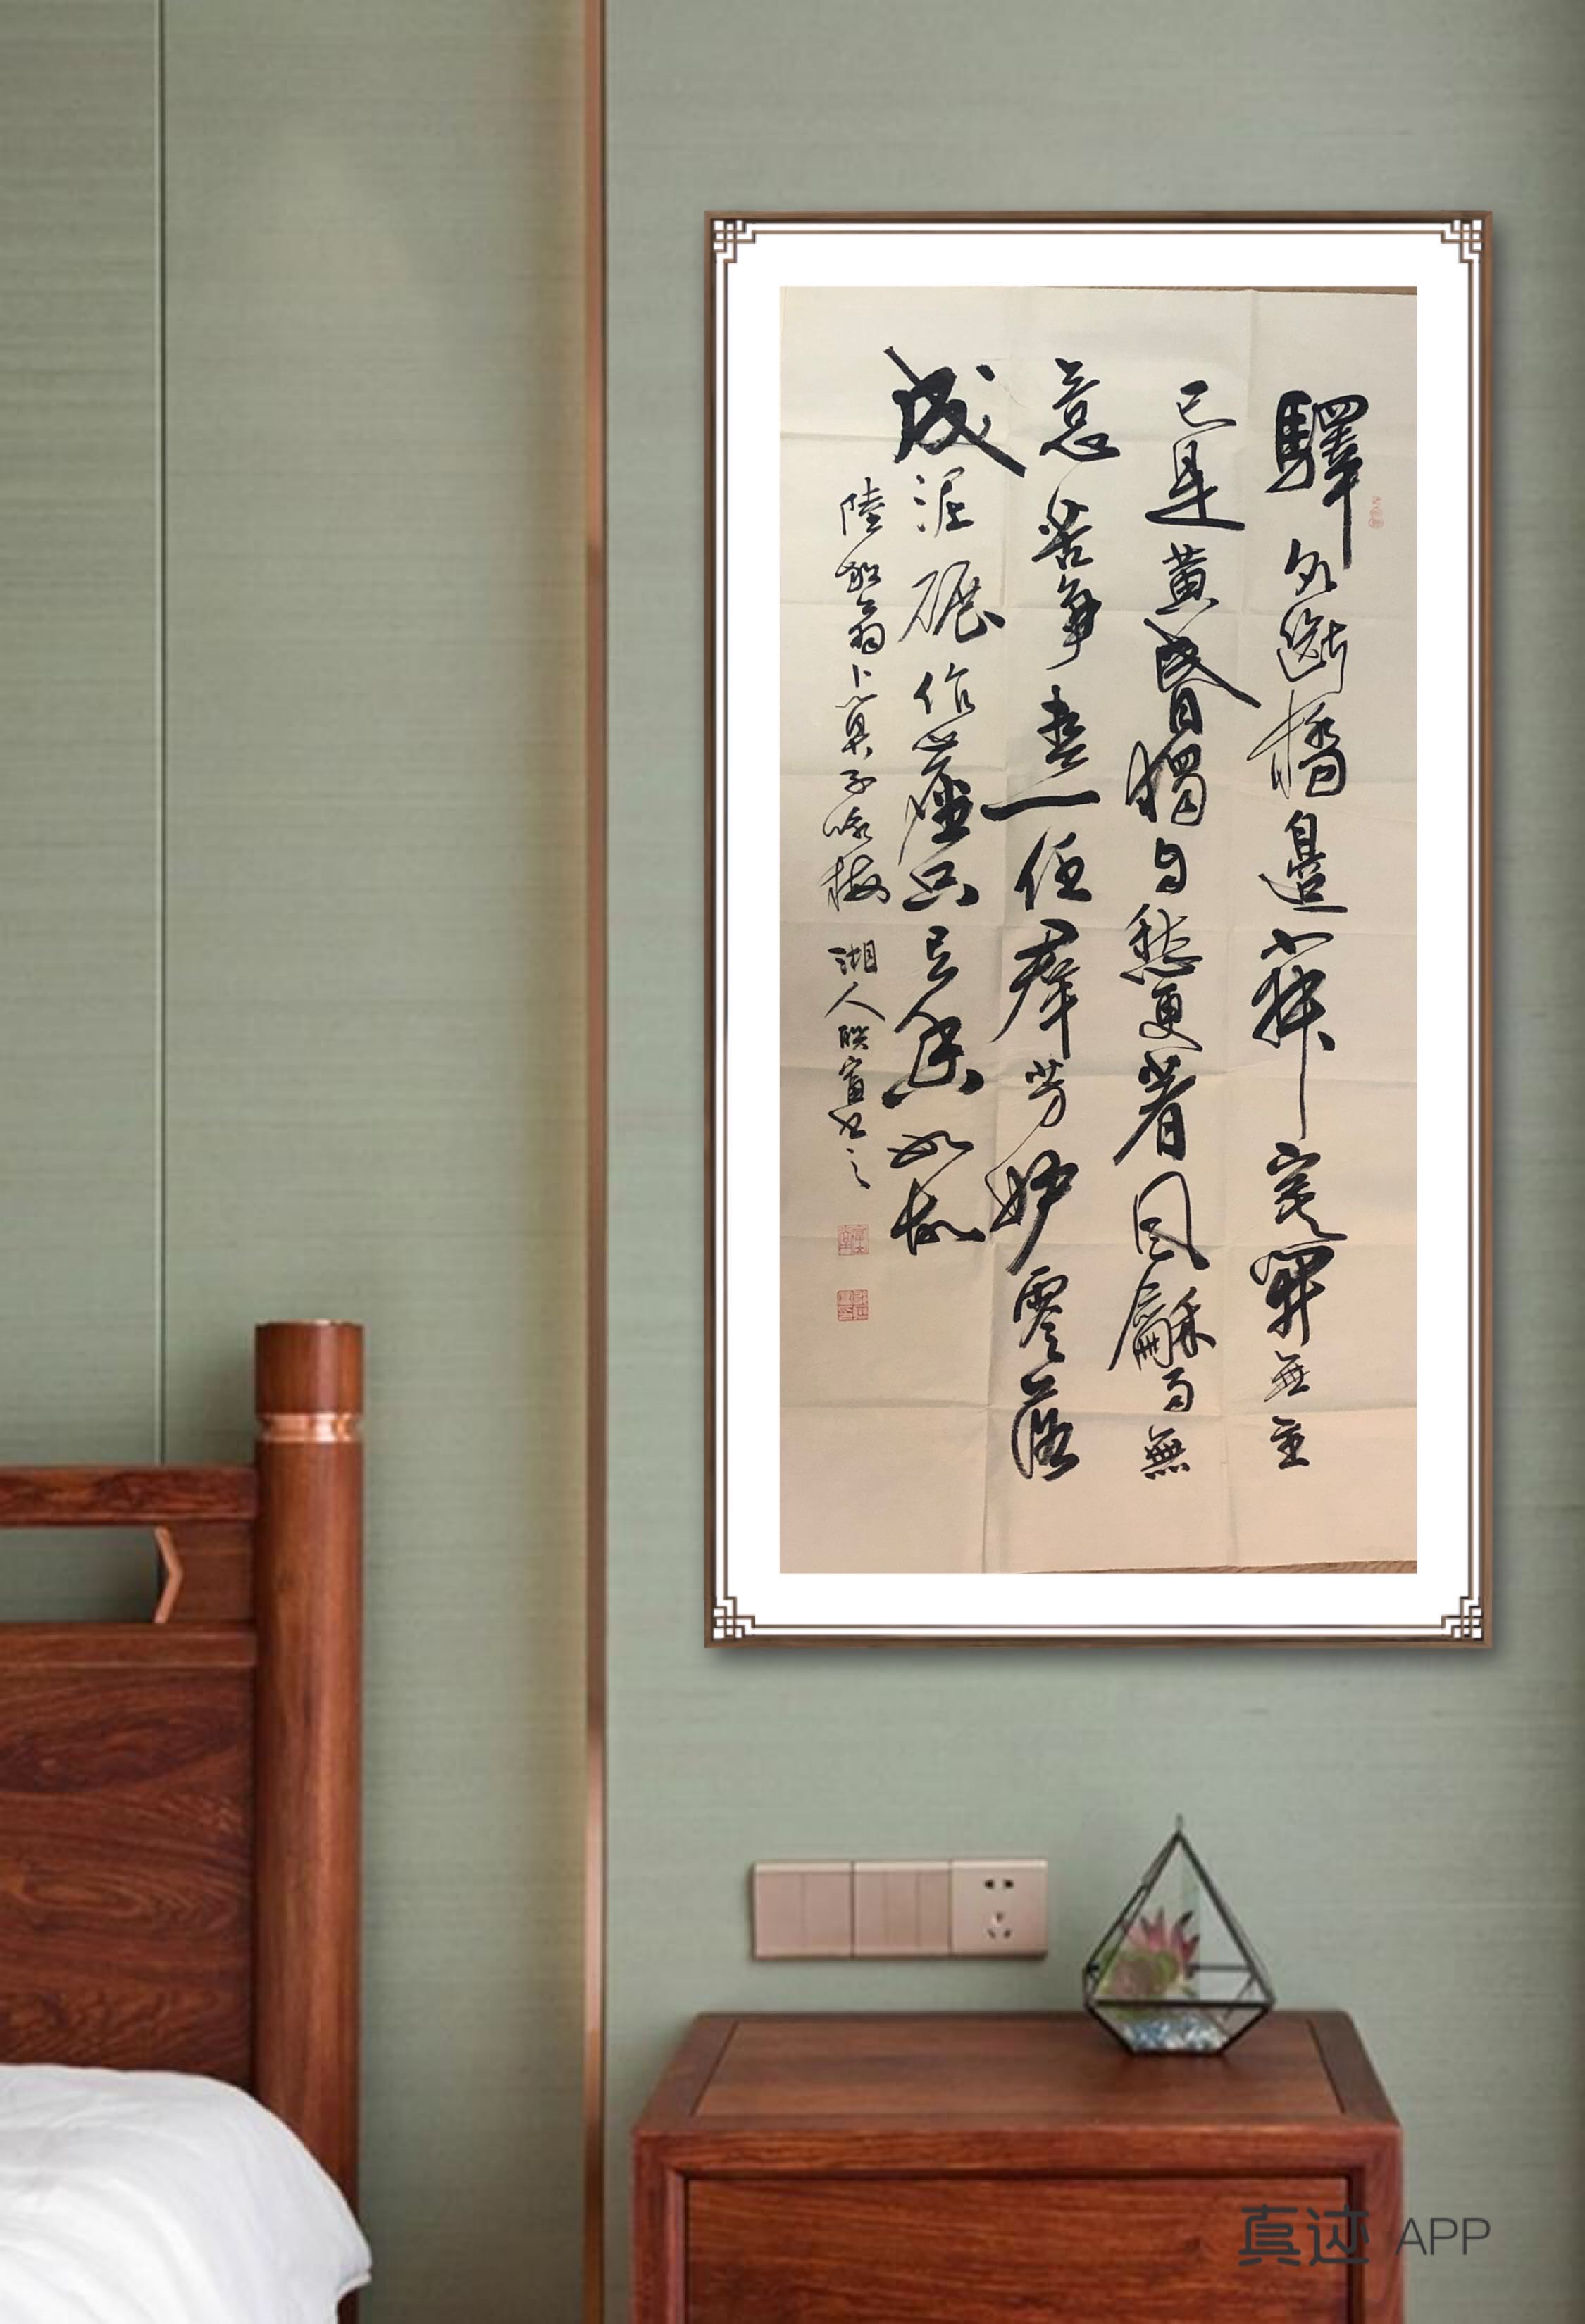 驛外斷橋邊寂寞開無主
已是黃昏獨自愁更著風龢雨無
意苦爭春一任羣芳妒零落
成泥碾作塵只有香如故
陸放翁卜算子咏梅 湘人聯富書之
真迹 APP